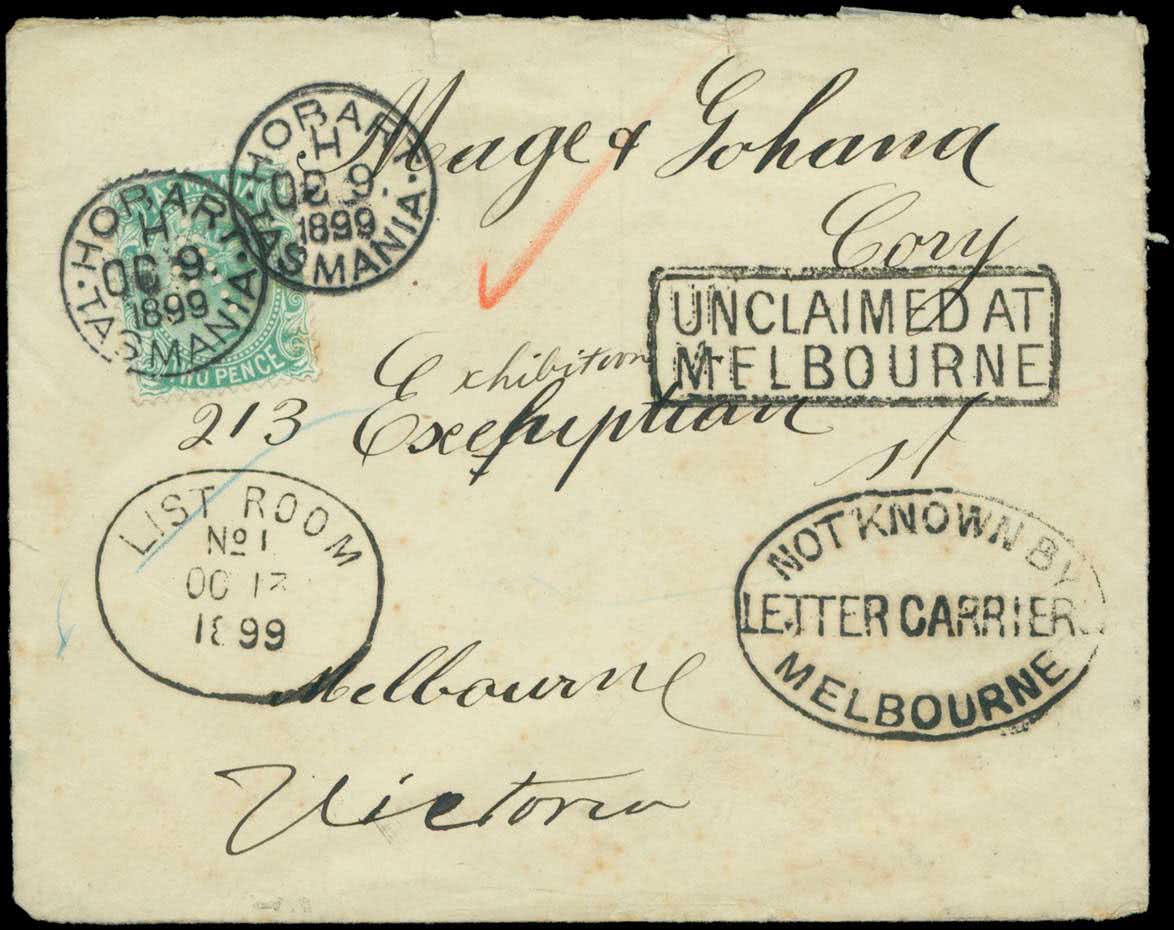 HOBART
H
OC 9.
1899
TASMANIA
HOBART
H
OC 9.
1899
TASMANIA
TASMANIA
TWO PENCE
Mage & Johana
Cory
UNCLAIMED AT
MELBOURNE
Exhibition
213 st
LIST ROOM
No 1
OC
1899
NOT KNOWN BY
LETTER CARRIER
MELBOURNE
Melbourne
Victoria